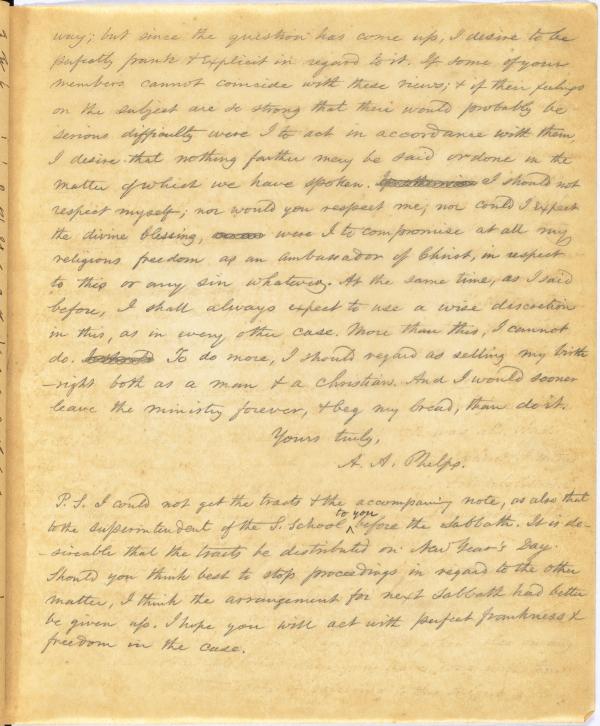 way; but since the question has come up, I desire to be
perfectly frank & explicit in regard to it. If some of your
members cannot coincide with these views; & if their feelings
on the subject are so strong that there would probably be
serious difficulty were I to act in accordance with them,
I desire that nothing farther may be said or done in the
matter of which we have spoken. I should not
respect myself; nor would you respect me; nor could I expect
the divine blessing, were I to compromise at all my
religious freedom as an ambassador of Christ, in respect
to this or any sin whatever. At the same time, as I said
before, I shall always expect to use a wise discretion
in this, as in every other case. More than this, I cannot
do. To do more, I should regard as selling my birth
-right both as a man & a Christian. And I would sooner
leave the ministry forever, & beg my bread, than do it.
Yours truly,
A. A. Phelps.
P.S. I could not get the tracts & the accompaning note, as also that
to the superintendent of the S. School to you before the Sabbath. It is de-
-sireable that the tracts be distributed on New Year's Day.
Should you think best to stop proceedings in regard to the other
matter, I think the arrangement for next Sabbath had better
be given up. I hope you will act with perfect frankness &
freedom in the case.